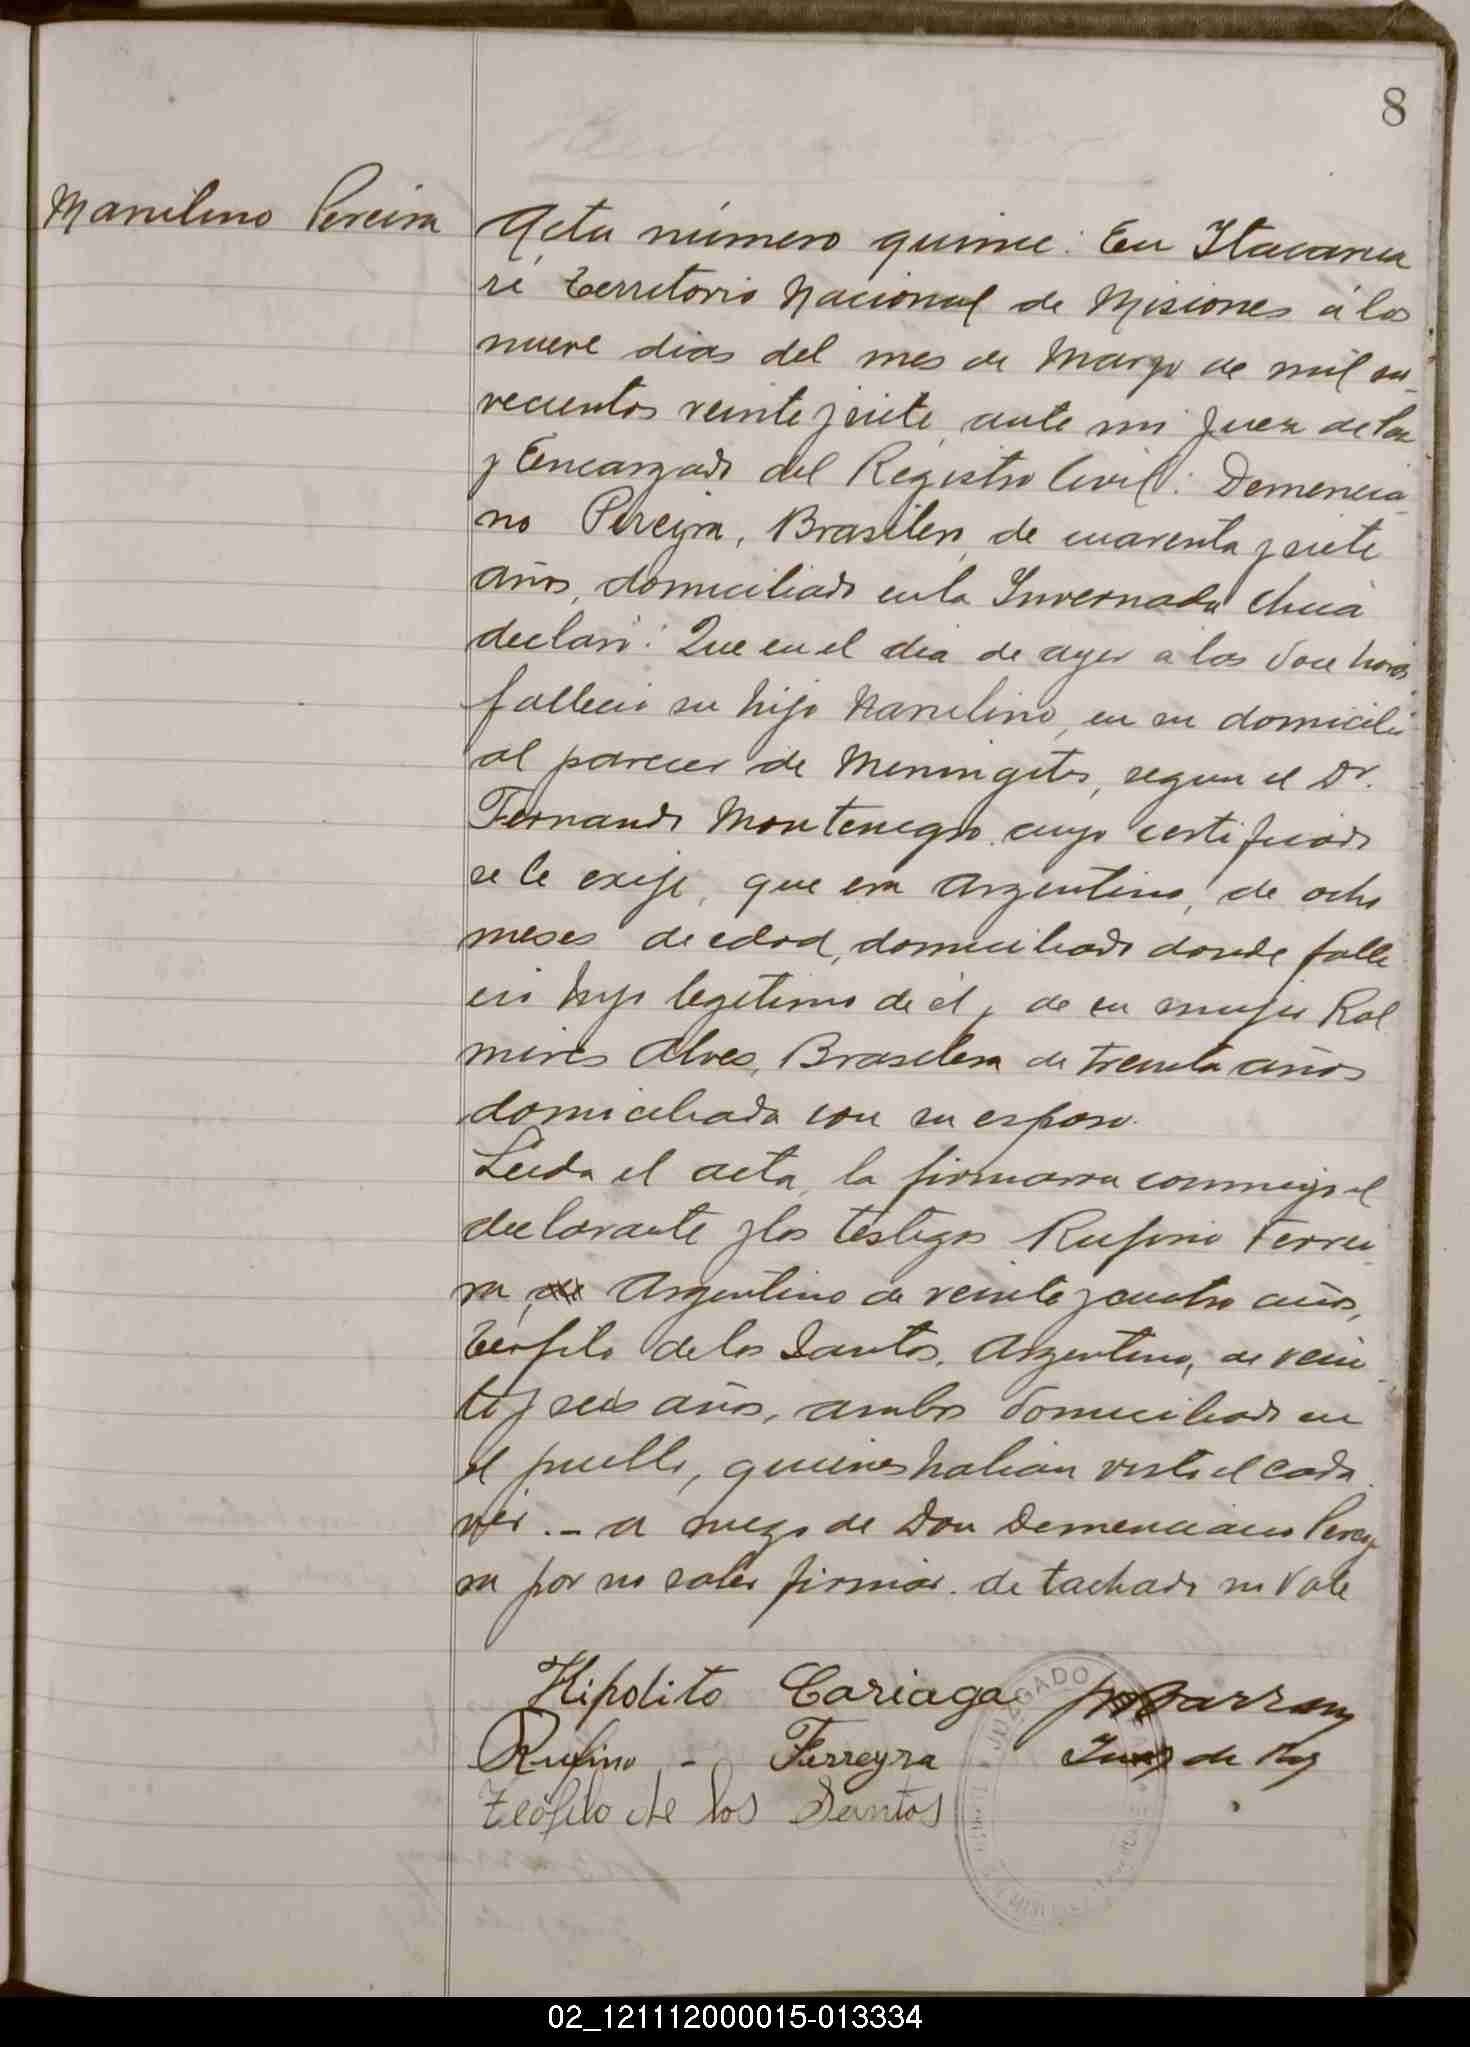 8
Marculino Pereira
Acta número quince: En Itacarua
ré Territorio Nacional de Misiones á los
nueve dias del mes de Marzo de mil no-
vecientos veinte y siete, ante mi Juez de Paz
y Encargado del Registro Civil: Demencia-
no Pereyra, Brasilero, de cuarenta y siete
años, domiciliado en la Invernada Chica
declaró: Que en el dia de ayer a las doce horas
fallecio su hijo Marculino, en su domicilio
al parecer de Meningitis, segun el Dr.
Fernando Montenegro cuyo certificado
se le exije, que era Argentino, de ocho
meses de edad, domiciliado donde falle
cio hijo legitimo de él y de su mujer Ral
mires Alves, Brasilera de treinta años
domiciliada con su esposo.
Leida el acta, la firmaron conmigo el
declarante y los testigos Rufino Ferrei-
ra, de Argentino de veinte y cuatro años,
Teófilo de los Santos, Argentino, de vein-
te y seis años, ambos domiciliado en
el pueblo, quienes habian visto el cada
ver.- a ruego de Don Demenciano Perey
ra por no saber firmar. de tachado no vale
Hipolito Cariaga
Rufino - Ferreyra Juez de Paz
Teófilo de los Santos
JUZGADO
02_121112000015-013334